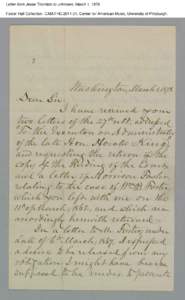 Letter from Jesse Thornton to unknown, March 1, 1878
Foster Hall Collection, CAM.FHC.2011.01, Center for American Music, University of Pittsburgh.
Washington, March 1, 1878.
Dear Sir,
I have received your
two letters of the 27th ult, addressed
to the Executor or Administrator
of the late Hon. Horatio King,
and requesting the return of the
copy of the finding of the Court
and a letter of Morrison Foster
relating to the case of
which you left with me on the
10th of March, 1862, and which are
accordingly herewith returned.
In a letter to Mr. Foster under
date of 6th March, 1867, I expressed
a desire to be released from any
obligation I might have been
supposed to be under to